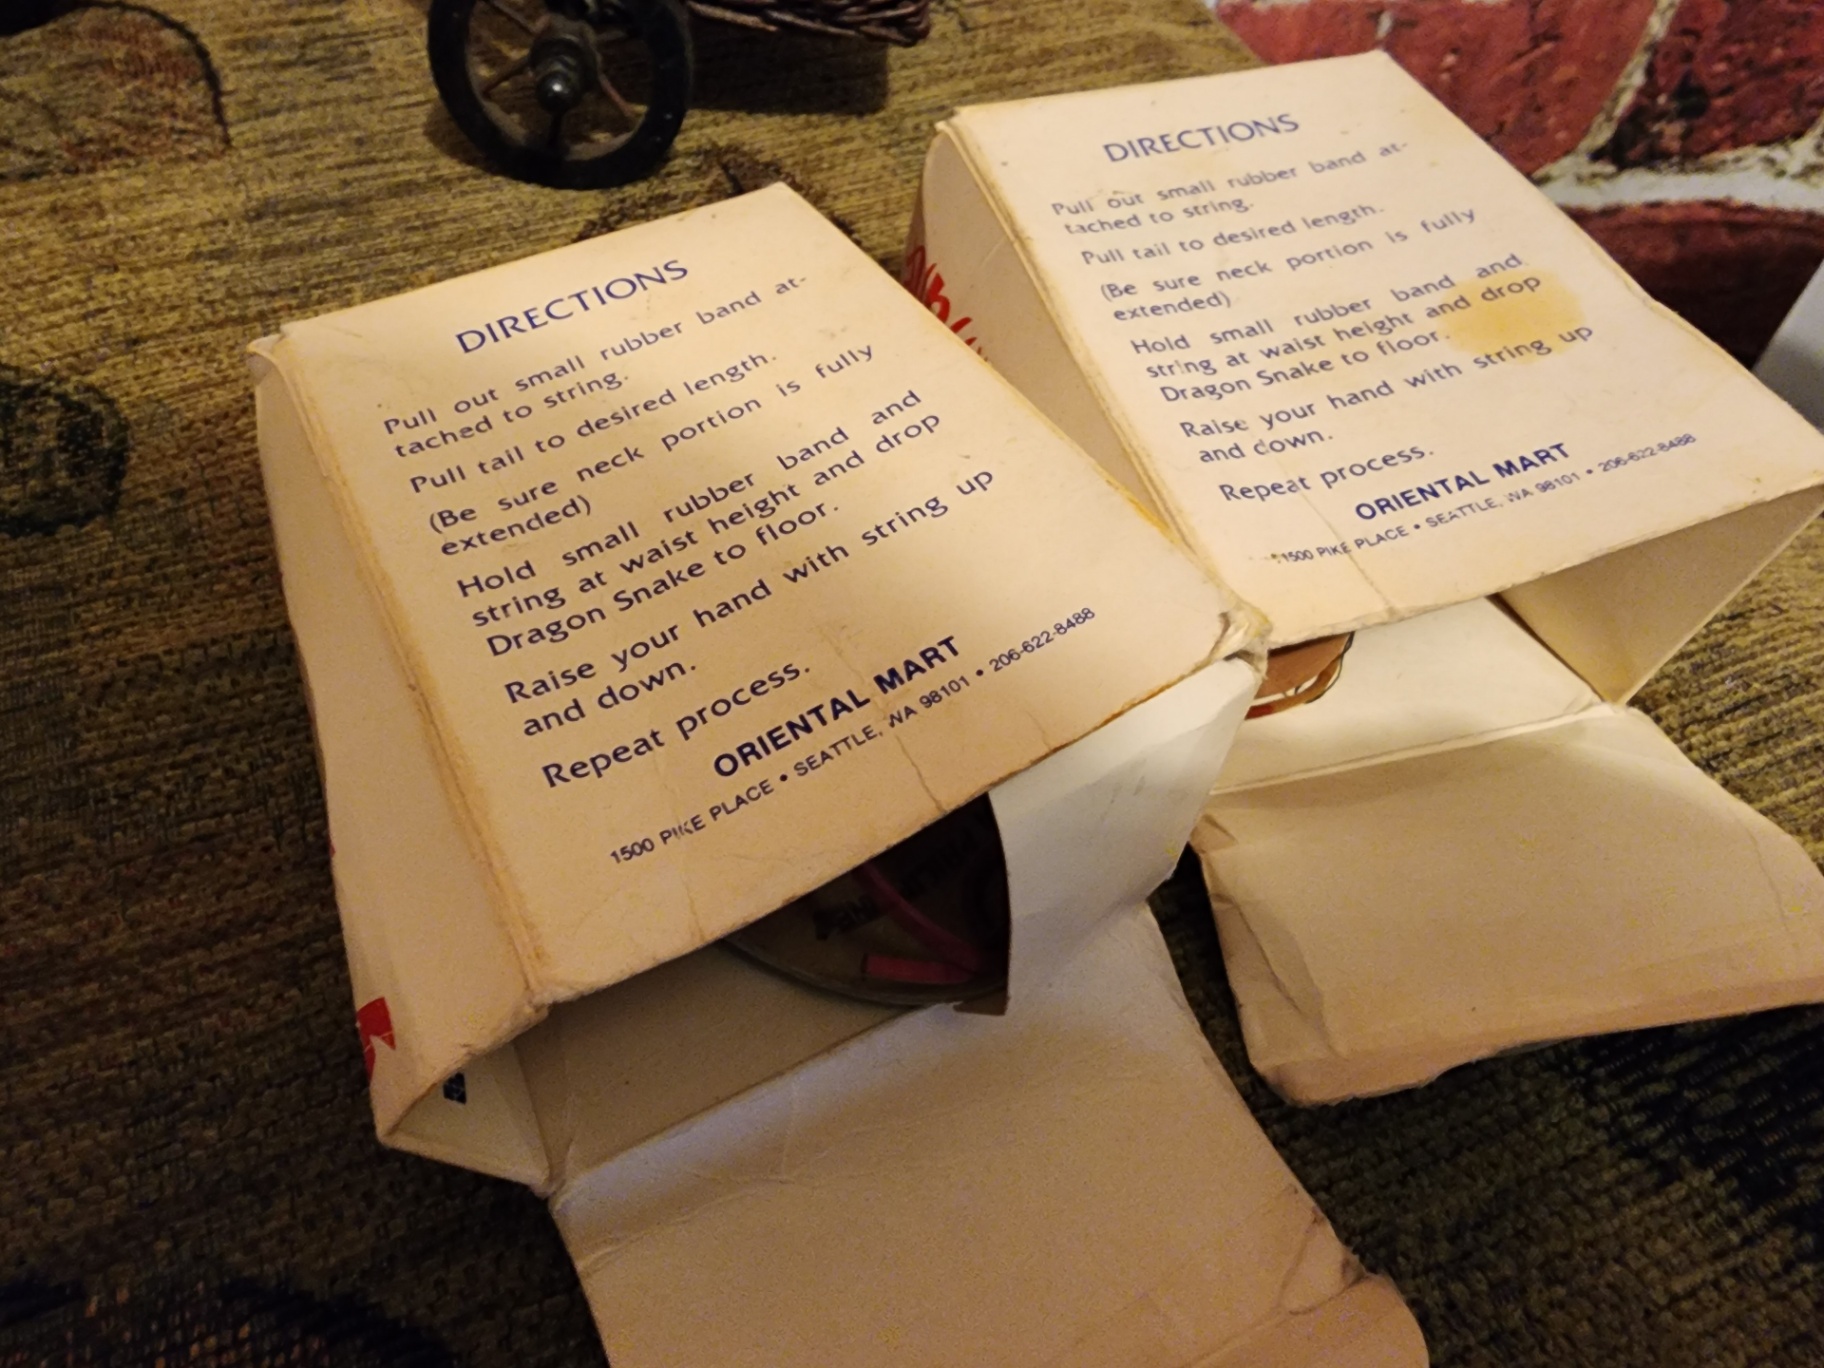 DIRECTIONS
Pull out small rubber band at-
tached to string.
Pull tail to desired length.
(Be sure neck portion is fully
extended)
Hold small rubber band and
string at waist height and drop
Dragon Snake to floor.
Raise your hand with string up
and down.
Repeat process.
ORIENTAL MART
1500 PIKE PLACE • SEATTLE, WA 98101 • 206-622-8488
DIRECTIONS
Pull out small rubber band at-
tached to string.
Pull tail to desired length.
(Be sure neck portion is fully
extended)
Hold small rubber band and
string at waist height and drop
Dragon Snake to floor.
Raise your hand with string up
and down.
Repeat process.
ORIENTAL MART
1500 PIKE PLACE • SEATTLE, WA 98101 • 206-622-8488